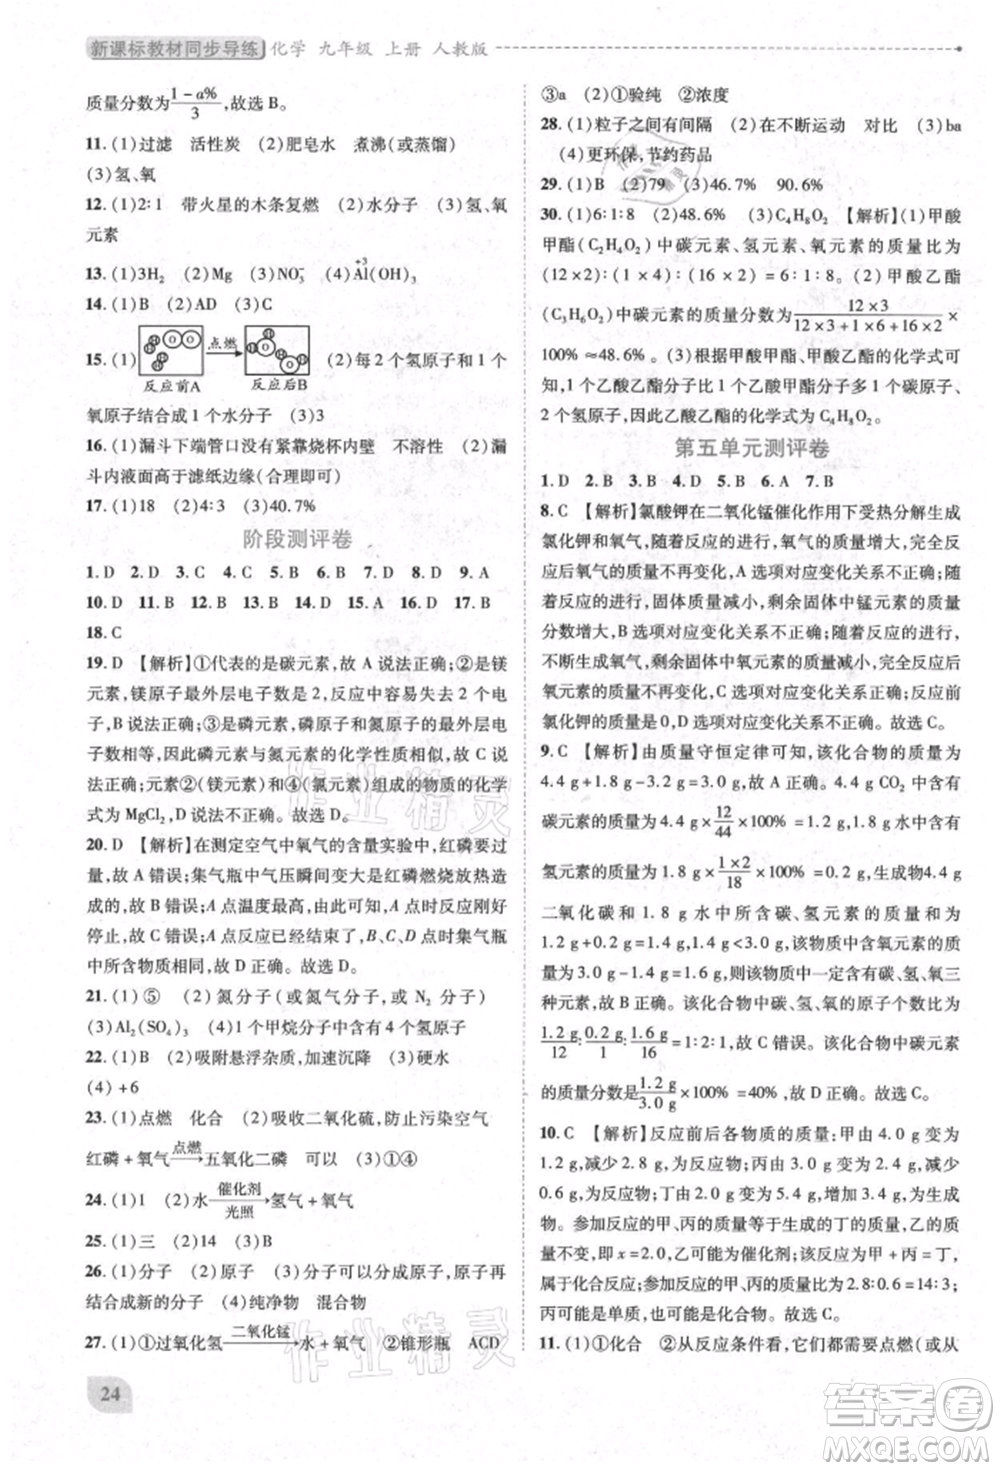 新课标教材同步导练 化学 九年级 上册 人教版
质量分数为(1－a%)/3,故选 B。
11.(1)过滤 活性炭 (2)肥皂水 煮沸(或蒸馏)
(3)氢、氧
12.(1)2∶1 带火星的木条复燃 (2)水分子 (3)氢、氧
元素
13.(1)3H₂ (2)Mg (3)NO₃⁻ (4)Al(+3)(OH)₃
14.(1)B (2)AD (3)C
点燃
15.(1) (2)每 2 个氢原子和 1 个
反应前A 反应后B
氧原子结合成 1 个水分子 (3)3
16.(1)漏斗下端管口没有紧靠烧杯内壁 不溶性 (2)漏
斗内液面高于滤纸边缘(合理即可)
17.(1)6 (2)4∶3 (3)40.7%
阶段测评卷
1.D 2.D 3.D 4.D 5.C 6.B 7.B 8.B 9.A
10.D 11.B 12.B 13.D 14.D 15.A 16.D 17.B
18.C
19.D 【解析】①代表的是碳元素,故 A 说法正确;②是镁
元素,镁原子最外层电子数为 2,反应中容易失去 2 个电
子,B 说法正确;③是磷元素,磷原子和氮原子的最外层电
子数相等,因此磷元素与氮元素的化学性质相似,故 C 说法
正确;元素②(镁元素)和④(氯元素)形成的物质的化学
式为 MgCl₂,D 说法不正确。故选 D。
20.D 【解析】在测定空气中氧气的含量实验中,要求红磷
过量,故 A 错误;集气瓶中气压瞬间增大是红磷燃烧放热造
成的,故 B 错误;A 点温度最高,但红磷的燃烧反应并没有
停止,故 C 错误;A 点后红磷仍在燃烧,A、B、C 点时集气瓶
中所含物质均有差异,故 D 正确。
21.(1)⑤ (2)氮分子(或氮气分子,或 N₂ 分子)
(3)Al₂(SO₄)₃ (4)1 个甲烷分子中有 4 个氢原子
22.(1)B (2)吸附悬浮杂质,加速沉降 (3)硬水
(4)+6
23.(1)点燃 化合 (2)吸收二氧化硫,防止污染空气
红磷＋氧气 —点燃→ 五氧化二磷 可以 (3)①④
24.(1)A (2)水 —催化剂/光照→ 氢气＋氧气
25.(1)三 (2)14 (3)B
26.(1)分子 (2)原子 (3)分子可以分成原子,原子再
结合成新的分子 (4)纯净物 混合物
27.(1)①过氧化氢 —二氧化锰→ 水＋氧气 ②锥形瓶 ACD
24
③a (2)①验纯 ②浓度
28.(1)粒子之间有间隔 (2)在不断运动 对比 (3)ba
(4)更环保,节约药品
29.(1)B (2)79 (3)46.7% 90.6%
30.(1)6∶1∶8 (2)48.6% (3)C₄H₈O₂ 【解析】(1)甲酸
甲酯(C₂H₄O₂)中碳元素、氢元素、氧元素的质量比为
(12×2)∶(1×4)∶(16×2)＝6∶1∶8。(2)甲酸乙酯
(C₃H₆O₂)中碳元素的质量分数为(12×3)/(12×3＋1×6＋16×2)×
100%≈48.6%。(3)根据甲酸甲酯、甲酸乙酯的化学式可
知,1 个乙酸乙酯分子比 1 个乙酸甲酯分子多 1 个碳原子、
2 个氢原子,因此乙酸乙酯的化学式为 C₄H₈O₂。
第五单元测评卷
1.D 2.B 3.B 4.D 5.A 6.A 7.B
8.C 【解析】氯酸钾在二氧化锰催化作用下受热分解生成
氯化钾和氧气,随着反应的进行,氧气的质量增大,完全反
应后氧气的质量不再变化,A 选项对应变化关系正确;随着
反应的进行,固体质量减小,剩余固体中锰元素的质量
分数增大,B 选项对应变化关系不正确;随着反应的进行,
不断生成氧气,剩余固体中氧元素的质量减小,完全反应后
氧元素的质量不再变化,C 选项对应变化关系正确;反应前
氯化钾的质量是 0,D 选项对应变化关系不正确。故选 C。
9.C 【解析】由质量守恒定律可知,该化合物的质量为
4.4 g＋1.8 g－3.2 g＝3.0 g,故 A 正确。4.4 g CO₂ 中含有
碳元素的质量为 4.4 g×12/44×100%＝1.2 g,1.8 g 水中含有
氢元素的质量为 1.8 g×(1×2)/18×100%＝0.2 g,4.4 g
二氧化碳和 1.8 g 水中所含碳、氢元素的质量之和为
1.2 g＋0.2 g＝1.4 g＜3.0 g,该物质中含有氧元素的质量为
3.0 g－1.4 g＝1.6 g,故 B 正确。该化合物中含有碳、氢、氧
元素,质量分别为 1.2 g、0.2 g、1.6 g,则碳、氢、氧原子个数比为
1.2 g/12∶0.2 g/1∶1.6 g/16＝1∶2∶1,故 C 错误。该化合物中碳元素
的质量分数是1.2 g/3.0 g×100%＝40%,故 D 正确。故选 C。
10.C 【解析】反应前后各物质的质量:甲由 4.0 g 变为
1.2 g,减少 2.8 g,为反应物;丙由 1.0 g 变为 0.4 g,减少
0.6 g,为反应物;丁由 0 g 变为 3.4 g,增加 3.4 g,为生成
物。参加反应的甲、丙的质量等于生成丁的质量,乙的质
量不变,即 x＝2.0,乙可能为催化剂。该反应为甲＋丙＝丁,
属于化合反应;参加反应的甲、丙的质量比为 2.8∶0.6＝14∶3,
丙可能是单质,也可能是化合物。故选 C。
11.(1)①化合 ②从反应条件看,它们都需点燃(或从
作业精灵
作业精灵
答案圈
MXQE.COM